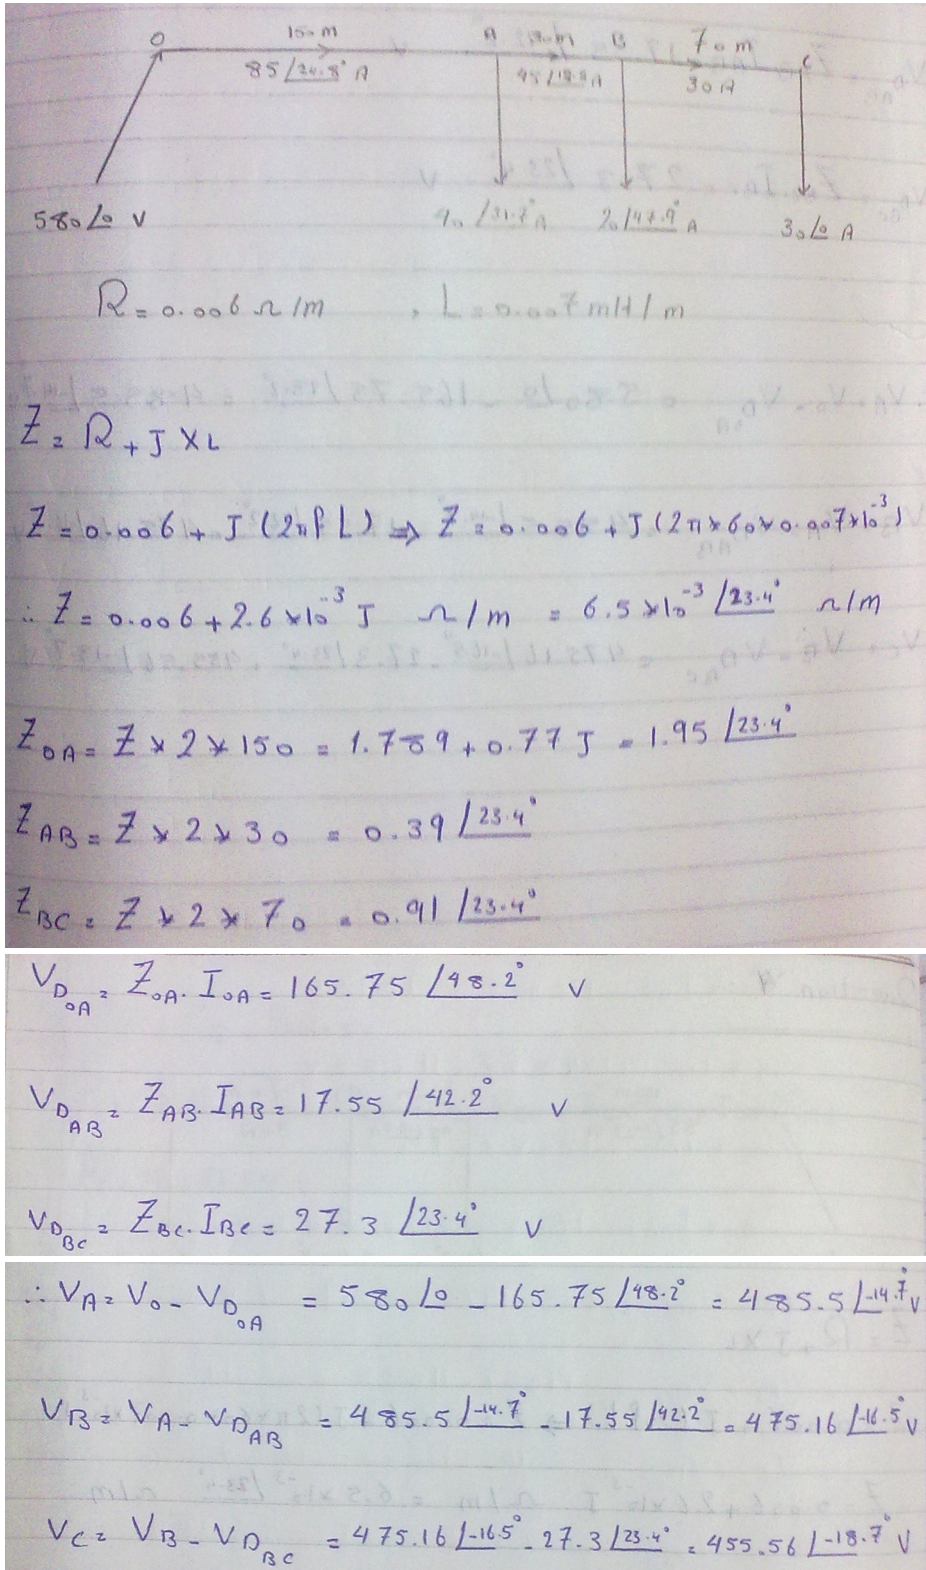 O 150 m A 30 m B 70 m C
85 /24.8° A 45 /18.8° A 30 A
580 /0 V 40 /31.7° A 20 /47.9° A 30 /0 A
R = 0.006 Ω/m , L = 0.007 mH/m
Z = R + J XL
Z = 0.006 + J (2πfL) ⇒ Z = 0.006 + J (2π*60*0.007*10⁻³)
∴ Z = 0.006 + 2.6*10⁻³ J Ω/m = 6.5*10⁻³ /23.4° Ω/m
Z_OA = Z * 2 * 150 = 1.789 + 0.77 J = 1.95 /23.4°
Z_AB = Z * 2 * 30 = 0.39 /23.4°
Z_BC = Z * 2 * 70 = 0.91 /23.4°
V_D_OA = Z_OA . I_OA = 165.75 /48.2° V
V_D_AB = Z_AB . I_AB = 17.55 /42.2° V
V_D_BC = Z_BC . I_BC = 27.3 /23.4° V
∴ V_A = V_O - V_D_OA = 580 /0 - 165.75 /48.2° = 485.5 /-14.7° V
V_B = V_A - V_D_AB = 485.5 /-14.7° - 17.55 /42.2° = 475.16 /-16.5° V
V_C = V_B - V_D_BC = 475.16 /-16.5° - 27.3 /23.4° = 455.56 /-18.7° V